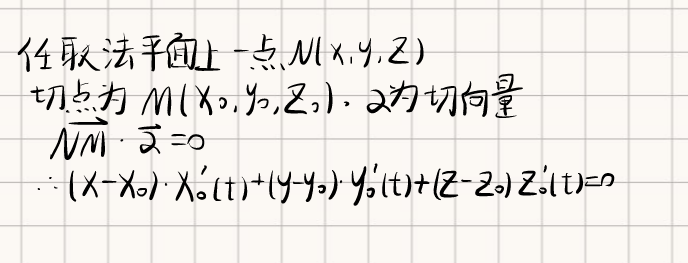 任取法平面上一点N(x,y,z)
切点为 M(x₀,y₀,z₀). α为切向量
$\overrightarrow{NM}\cdot\vec{α}=0$
∴(x-x₀)·x₀'(t)+(y-y₀)·y₀'(t)+(z-z₀)z₀'(t)=0